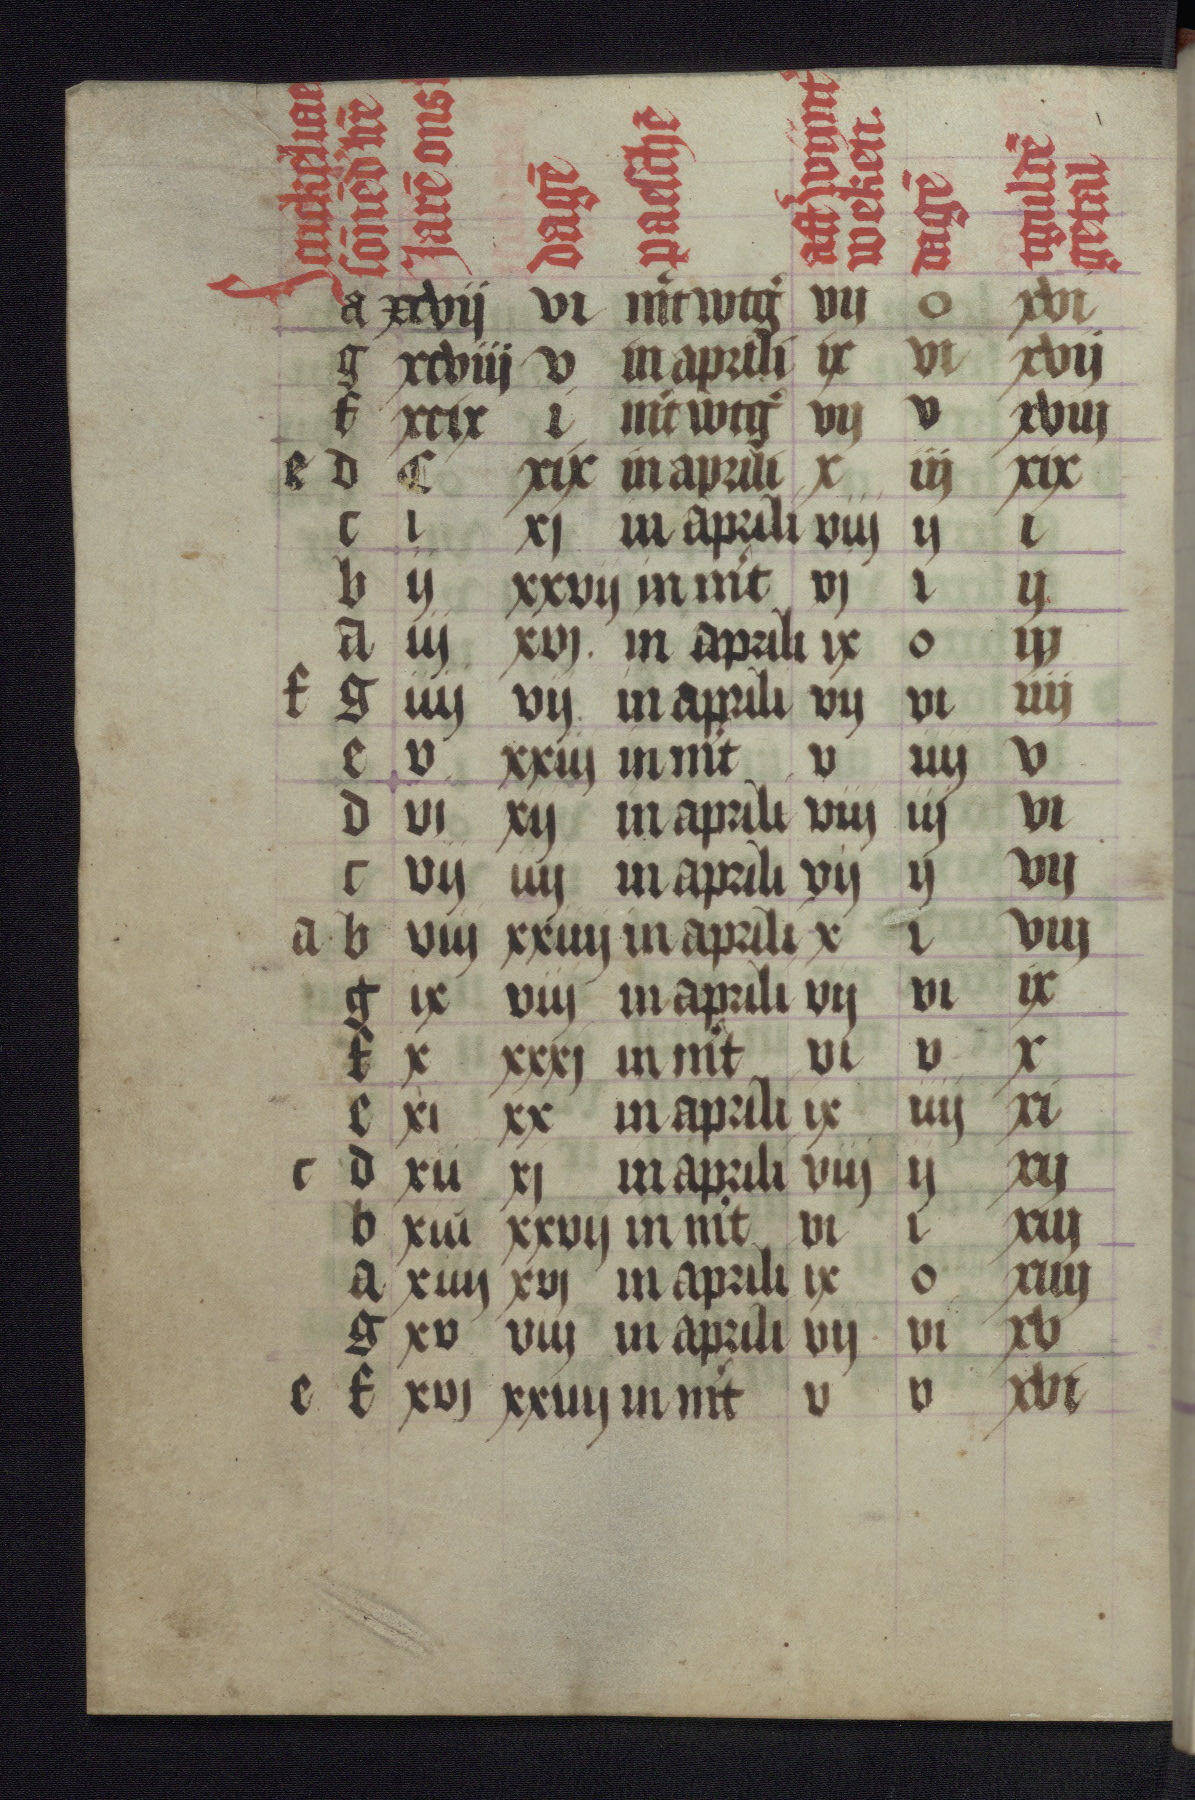 sōnēd vrē
Jarē ons
dagē
paesche
weken.
dagē
tgulde
getal
a xcvij vi mt wtg vij o xvi
g xcviij v in aprili ix vi xvij
f xcix i mt wtg vij v xviij
e d C xix in aprili x iij xix
c i xj in aprili viij ij i
b ij xxvij in mt vj i ij
a iij xvj. in aprili ix o iij
f g iiij vij in aprili vij vi iiij
e v xxiij in mt v iiij v
d vi xij in aprili viij iij vi
c vij iiij in aprili vij ij vij
a b viij xxiiij in aprili x i viij
g ix viij in aprili vij vi ix
f x xxxj in mt vi v x
e xi xx in aprili ix iiij xi
c d xii xj in aprili viij ij xij
b xiii xxvij in mt vi i xiij
a xiiij xvj in aprili ix o xiiij
g xv viij in aprili vij vi xv
e f xvj xxiiij in mt v v xvi